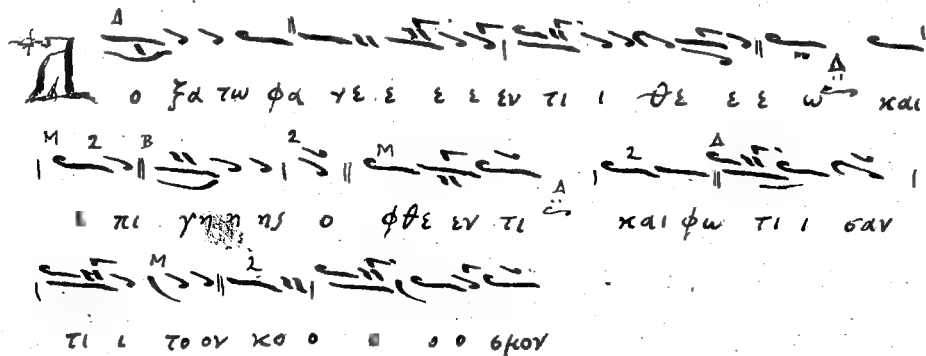 Δόξα τω φα νε ε ε ε εν τι ι Θε ε ε ω και
ε πι γη η ης ο φθε εν τι και φω τι ι σαν
τι ι το ον κο ο ο ο ο σμον